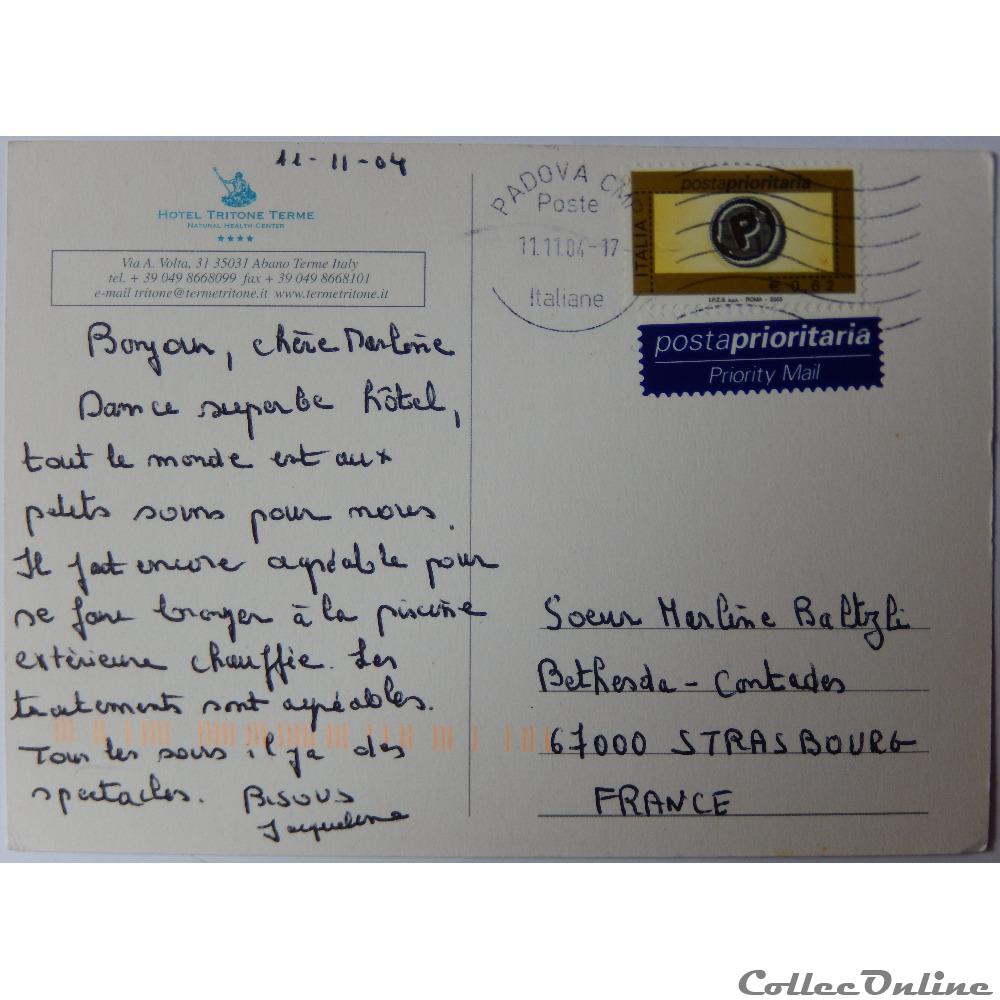 11-11-04
HOTEL TRITONE TERME
NATURAL HEALTH CENTER
Via A. Volta, 31 35031 Abano Terme Italy
tel. + 39 049 8668099 fax + 39 049 8668101
e-mail tritone@termetritone.it www.termetritone.it
Bonjour, chère Marlène
Dans ce superbe hôtel,
tout le monde est aux
petits soins pour nous.
Il fait encore agréable pour
se faire bronzer à la piscine
extérieure chauffée. Les
traitements sont agréables.
Tous les soirs il y a des
spectacles. BISOUS
Jacqueline
PADOVA CMP
Poste
11.11.04-17
Italiane
postaprioritaria
ITALIA
P
€ 0,62
I.P.Z.S. S.p.A. - ROMA - 2003
postaprioritaria
Priority Mail
Soeur Marlène Baltzli
Bethesda - Contades
67000 STRASBOURG
FRANCE
CollecOnline